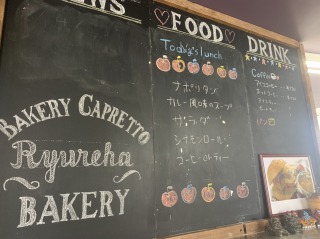 NS
BAKERY CAPRETTO
Ryureha
BAKERY
FOOD
Today's Lunch
ナポリタン
カレー風味のスープ
サラダ
シナモンロール
コーヒー or ティー
DRINK
Coffee